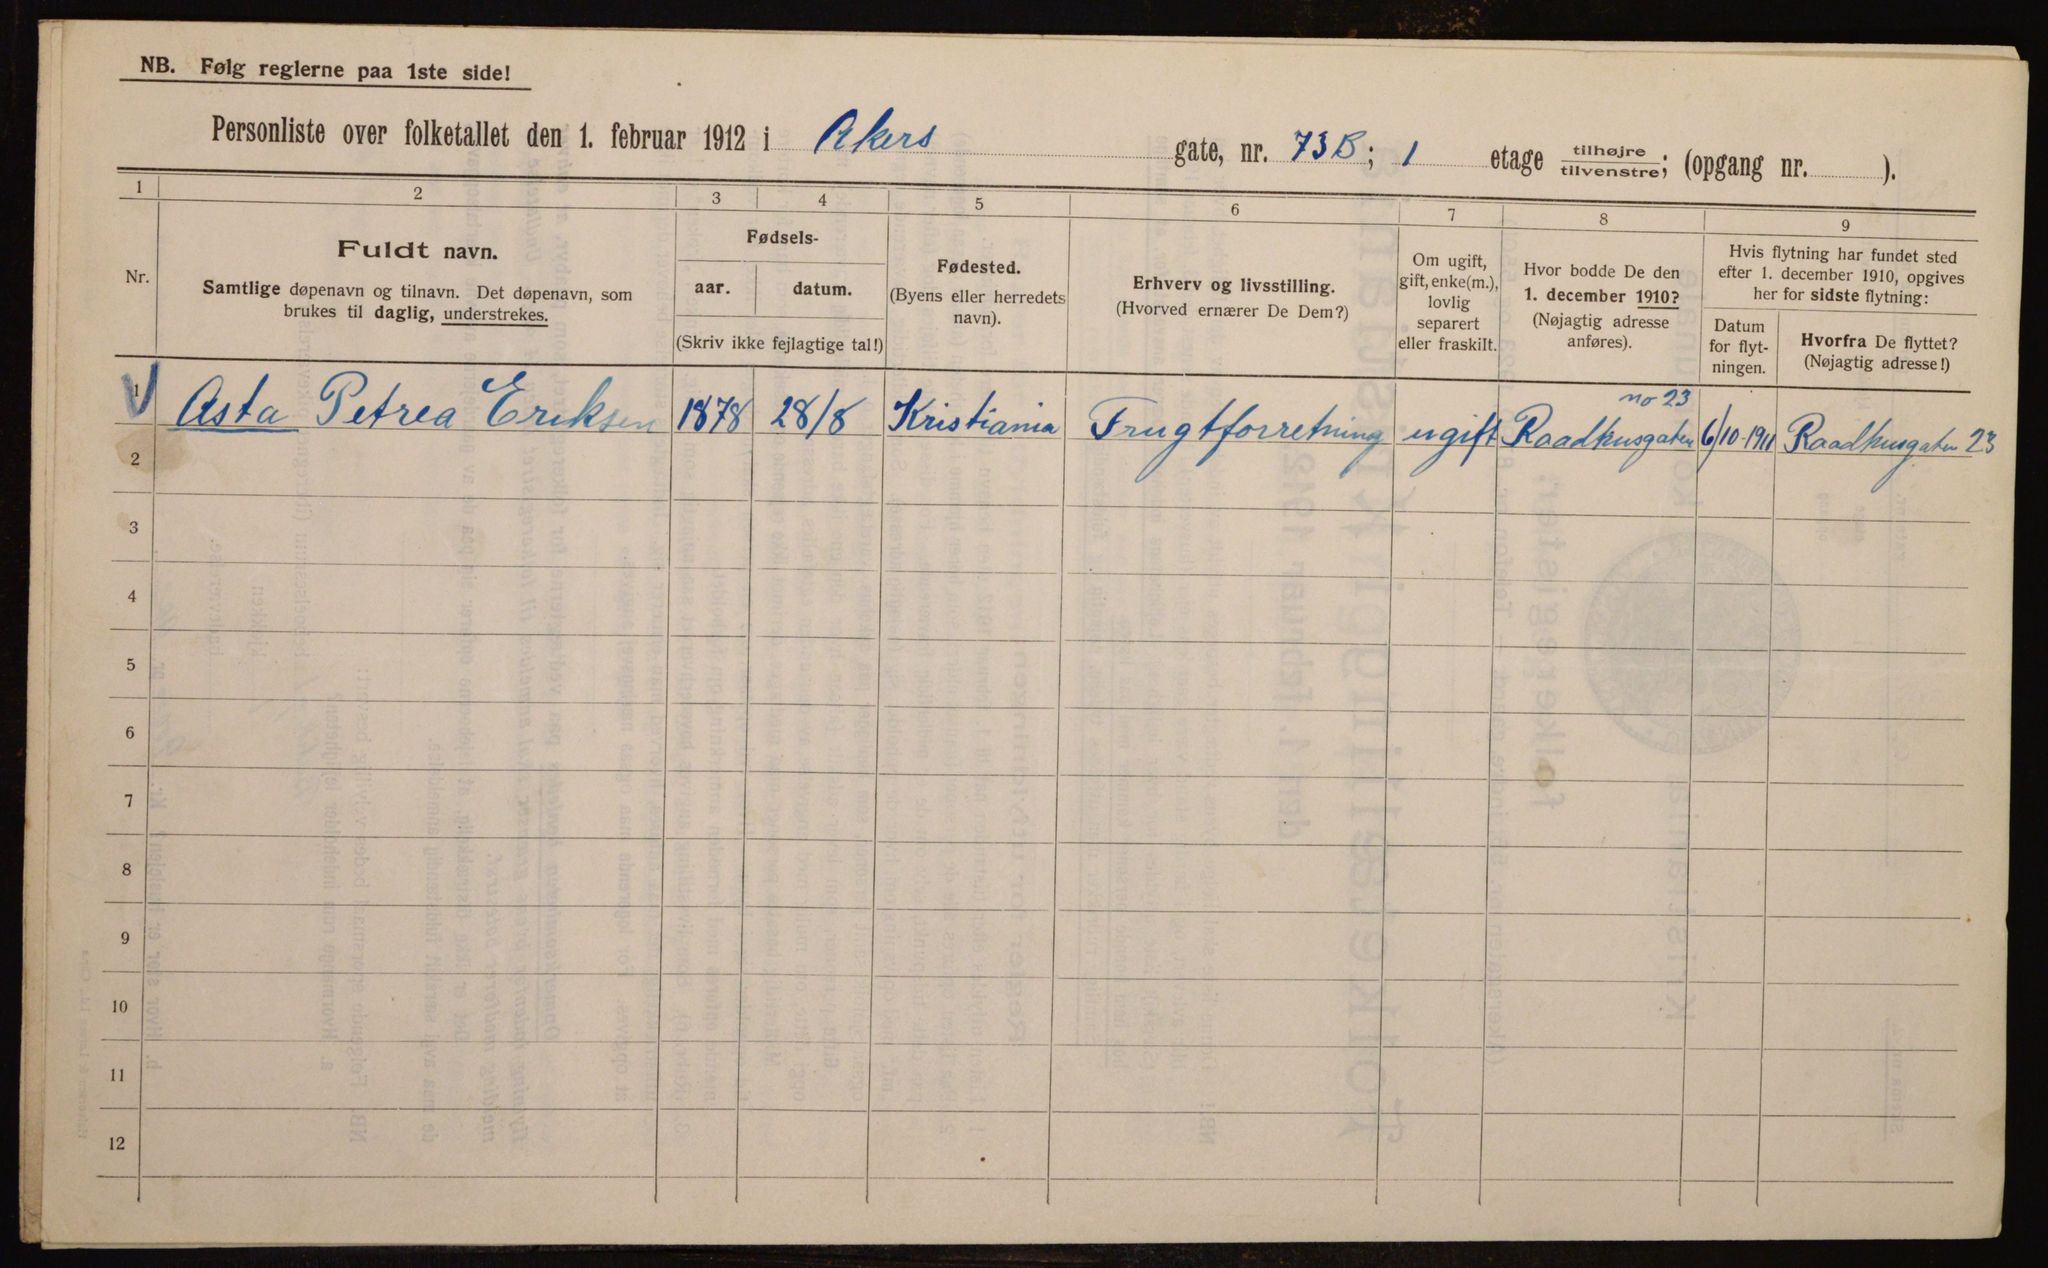 NB. Følg reglerne paa 1ste side!
Personliste over folketallet den 1. februar 1912 i Akers gate, nr. 73B; 1 etage tilhøjre/tilvenstre; (opgang nr. ).
1 2 3 4 5 6 7 8 9
Nr.
Fuldt navn.
Samtlige døpenavn og tilnavn. Det døpenavn, som
brukes til daglig, understrekes.
Fødsels-
aar. datum.
(Skriv ikke fejlagtige tal!)
Fødested.
(Byens eller herredets
navn).
Erhverv og livsstilling.
(Hvorved ernærer De Dem?)
Om ugift,
gift, enke(m.),
lovlig
separert
eller fraskilt.
Hvor bodde De den
1. december 1910?
(Nøjagtig adresse
anføres).
Hvis flytning har fundet sted
efter 1. december 1910, opgives
her for sidste flytning:
Datum
for flyt-
ningen.
Hvorfra De flyttet?
(Nøjagtig adresse!)
no 23
1 Asta Petrea Eriksen 1878 28/8 Kristiania Frugtforretning ugift Raadhusgaten 6/10-1911 Raadhusgaten 23
2
3
4
5
6
7
8
9
10
11
12